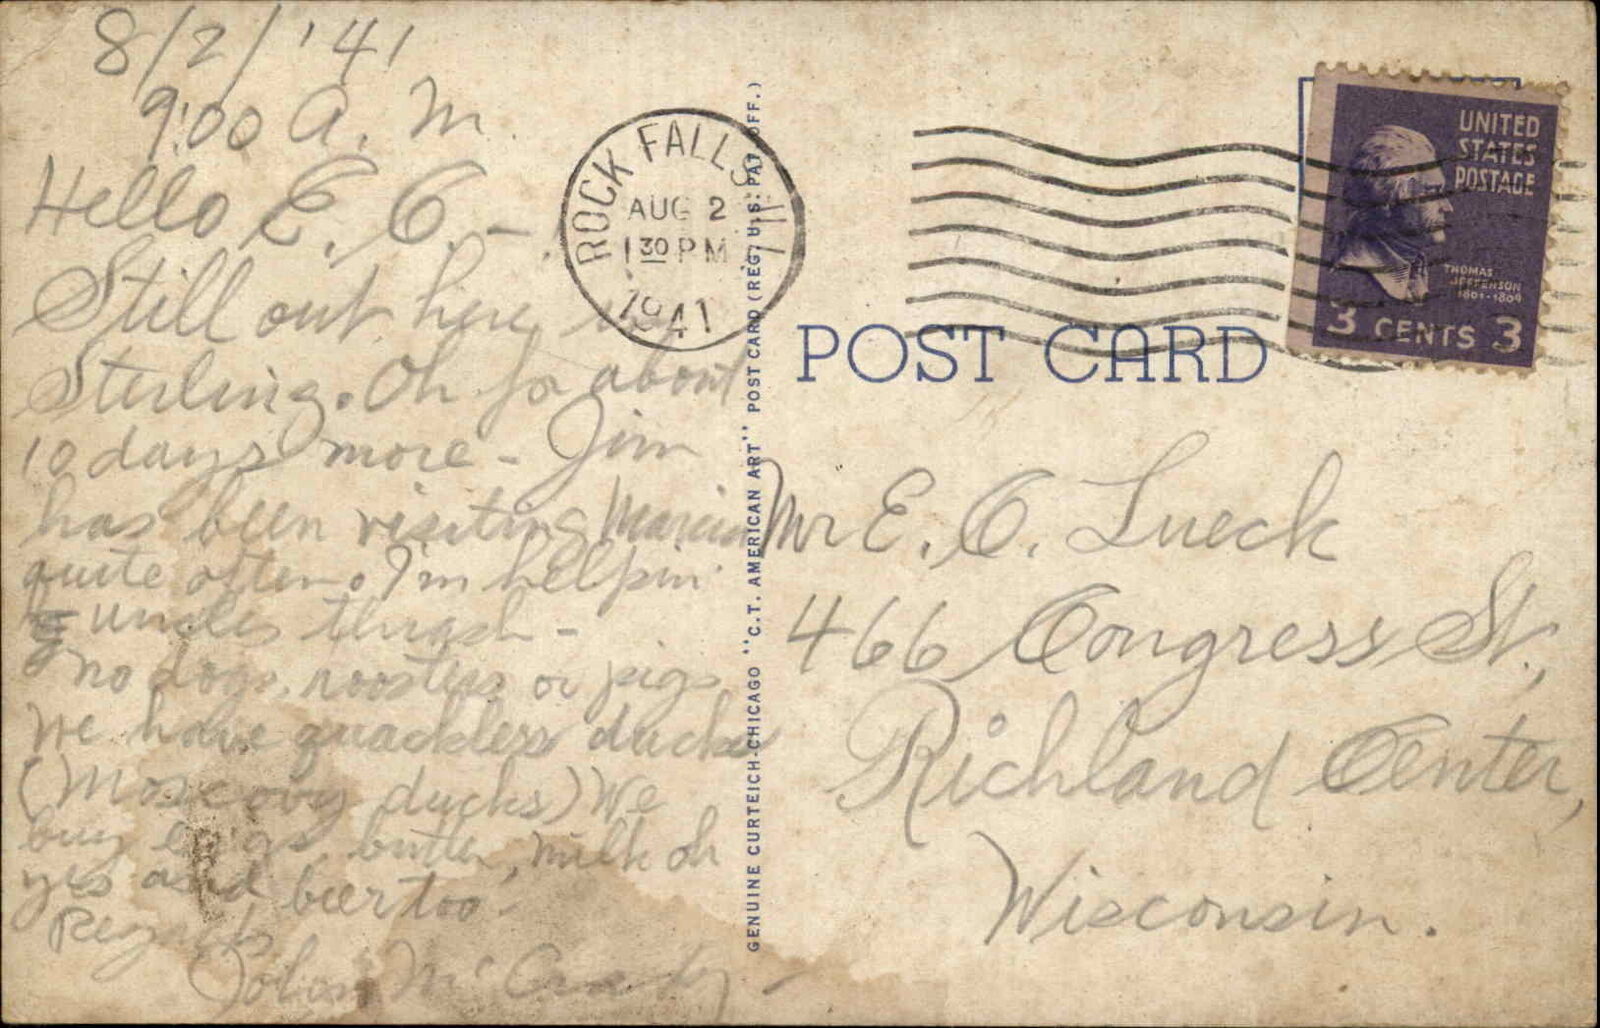 8/2/'41
9:00 A. M.
Hello E. C. –
Still out here in
Sterling. Oh for about
10 days more – Jim
has been visiting Marcia
quite often. I'm helpin'
uncles thrash –
no dogs, roosters or pigs
We have quackless ducks
(Moscovy ducks) We
buy eggs, butter, milk oh
yes and beer too –
Regards
John McCready
ROCK FALLS ILL
AUG 2
1 30 PM
1941
GENUINE CURTEICH-CHICAGO "C.T. AMERICAN ART" POST CARD (REG. U.S. PAT. OFF.)
UNITED
STATES
POSTAGE
THOMAS
JEFFERSON
1801-1809
3 CENTS 3
POST CARD
Mr E. C. Lueck
466 Congress St.,
Richland Center,
Wisconsin.